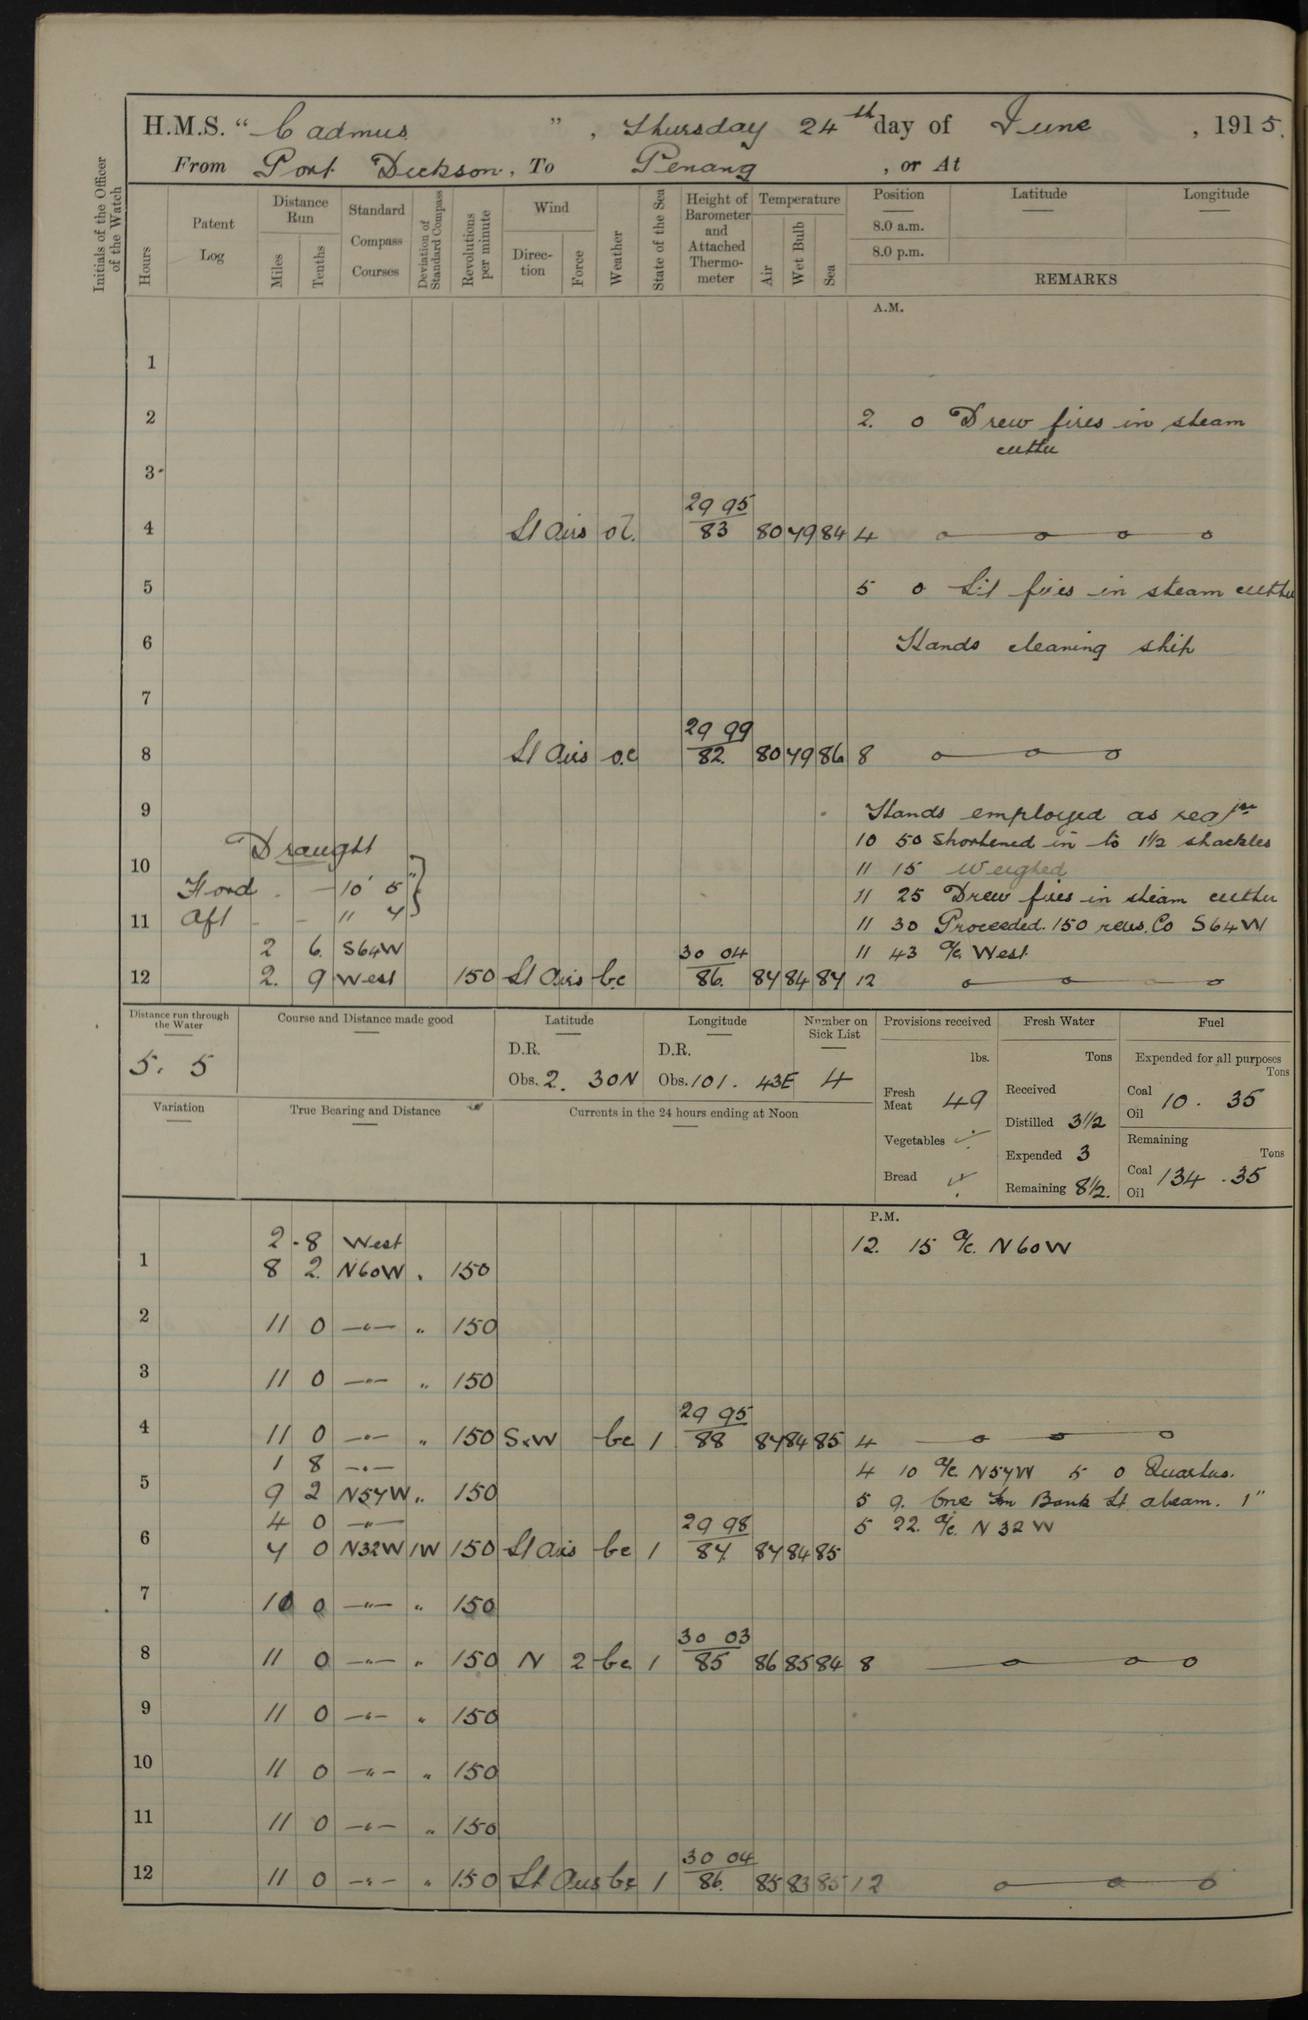 H.M.S. “ Cadmus ” , Thursday 24th day of June , 1915.
From Port Dickson, To Penang , or At
Initials of the Officer of the Watch
Hours
Patent Log
Distance Run
Miles
Tenths
Standard Compass Courses
Deviation of Standard Compass
Revolutions per minute
Wind
Direction
Force
Weather
State of the Sea
Height of Barometer and Attached Thermometer
Temperature
Air
Wet Bulb
Sea
Position
8.0 a.m.
8.0 p.m.
Latitude
Longitude
REMARKS
A.M.
1
2 2. 0 Drew fires in steam
cutter
3
29 95
4 Lt Airs 83 80 79 84 4
5 5 0 Lit fires in steam cutter
6 Hands cleaning ship
7
29 99
8 Lt Airs o.c 82. 80 79 86 8
9 Hands employed as reqre
Draught 10 50 Shortened in to 1½ shackles
10 11 15 Weighed
Ford - 10' 5" 11 25 Drew fires in steam cutter
11 Aft - - 11 7 11 30 Proceeded. 150 revs. Co S64W
2 6. S64W 30 04 11 43 a/c West.
12 2. 9 West 150 Lt Airs b.c 86. 87 84 87 12
Distance run through the Water
5. 5
Course and Distance made good
Latitude
D.R.
Obs. 2. 30N
Longitude
D.R.
Obs. 101. 43E
Number on Sick List
4
Provisions received
lbs.
Fresh Meat 49
Vegetables ✓.
Bread ✓.
Fresh Water
Tons
Received
Distilled 3½
Expended 3
Remaining 8½.
Fuel
Expended for all purposes
Tons
Coal 10. 35
Oil
Remaining
Tons
Coal 134 .35
Oil
Variation
True Bearing and Distance
Currents in the 24 hours ending at Noon
P.M.
2 . 8 West 12. 15 a/c. N60W
1 8 2. N60W . 150
2 11 0 —"— " 150
3 11 0 —"— " 150
29 95
4 11 0 —"— " 150 S.W bc 1 88 87 84 85 4
1 8 —"— 4 10 a/c N57W 5 0 Quarters.
5 9 2 N57W " 150 5 9. One Bank Lt abeam. 1"
4 0 —"— 29 98 5 22. a/c. N32W
6 7 0 N32W 1W 150 Lt Airs bc 1 87. 87 84 85
7 10 0 —"— " 150
30 03
8 11 0 —"— " 150 N 2 bc 1 85 86 85 84 8
9 11 0 —"— " 150
10 11 0 —"— " 150
11 11 0 —"— " 150
30 04
12 11 0 —"— " 150 Lt Airs bc 1 86. 85 83 85 12